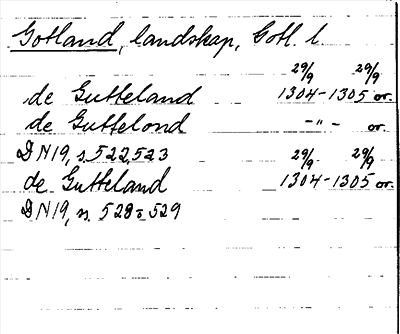 Gotland, landskap, Gotl. l.
29/9 29/9
de Gutteland 1304-1305 or.
de Guttelond -"- or.
DN19, s. 522, 523 29/9 29/9
de Gutteland 1304-1305 or.
DN19, s. 528-529